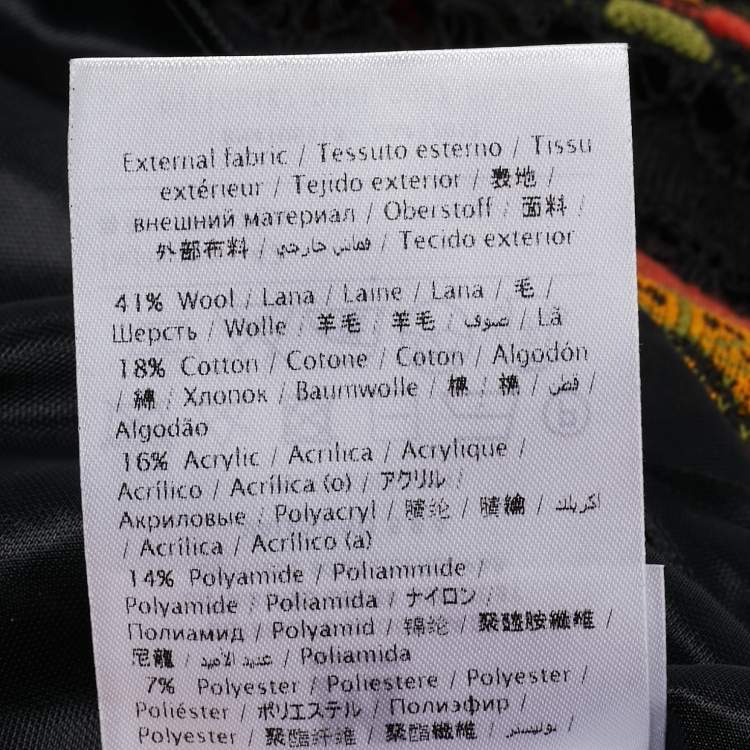 External fabric / Tessuto esterno / Tissu
extérieur / Tejido exterior / 表地 /
внешний материал / Oberstoff / 面料 /
外部布料 / قماس خارجي / Tecido exterior
41% Wool / Lana / Laine / Lana / 毛 /
Шерсть / Wolle / 羊毛 / 羊毛 / صوف / Lã
18% Cotton / Cotone / Coton / Algodón
/ 綿 / Хлопок / Baumwolle / 棉 / 棉 / قطن /
Algodão
16% Acrylic / Acrilica / Acrylique /
Acrílico / Acrílica (o) / アクリル /
Акриловые / Polyacryl / 腈纶 / 腈綸 / اكريلك
/ Acrílica / Acrílico (a)
14% Polyamide / Poliammide /
Polyamide / Poliamida / ナイロン /
Полиамид / Polyamid / 锦纶 / 聚醯胺纖維 /
尼龍 / عديد الاميد / Poliamida
7% Polyester / Poliestere / Polyester /
Poliéster / ポリエステル / Полиэфир /
Polyester / 聚酯纤维 / 聚酯纖維 / بوليستر /